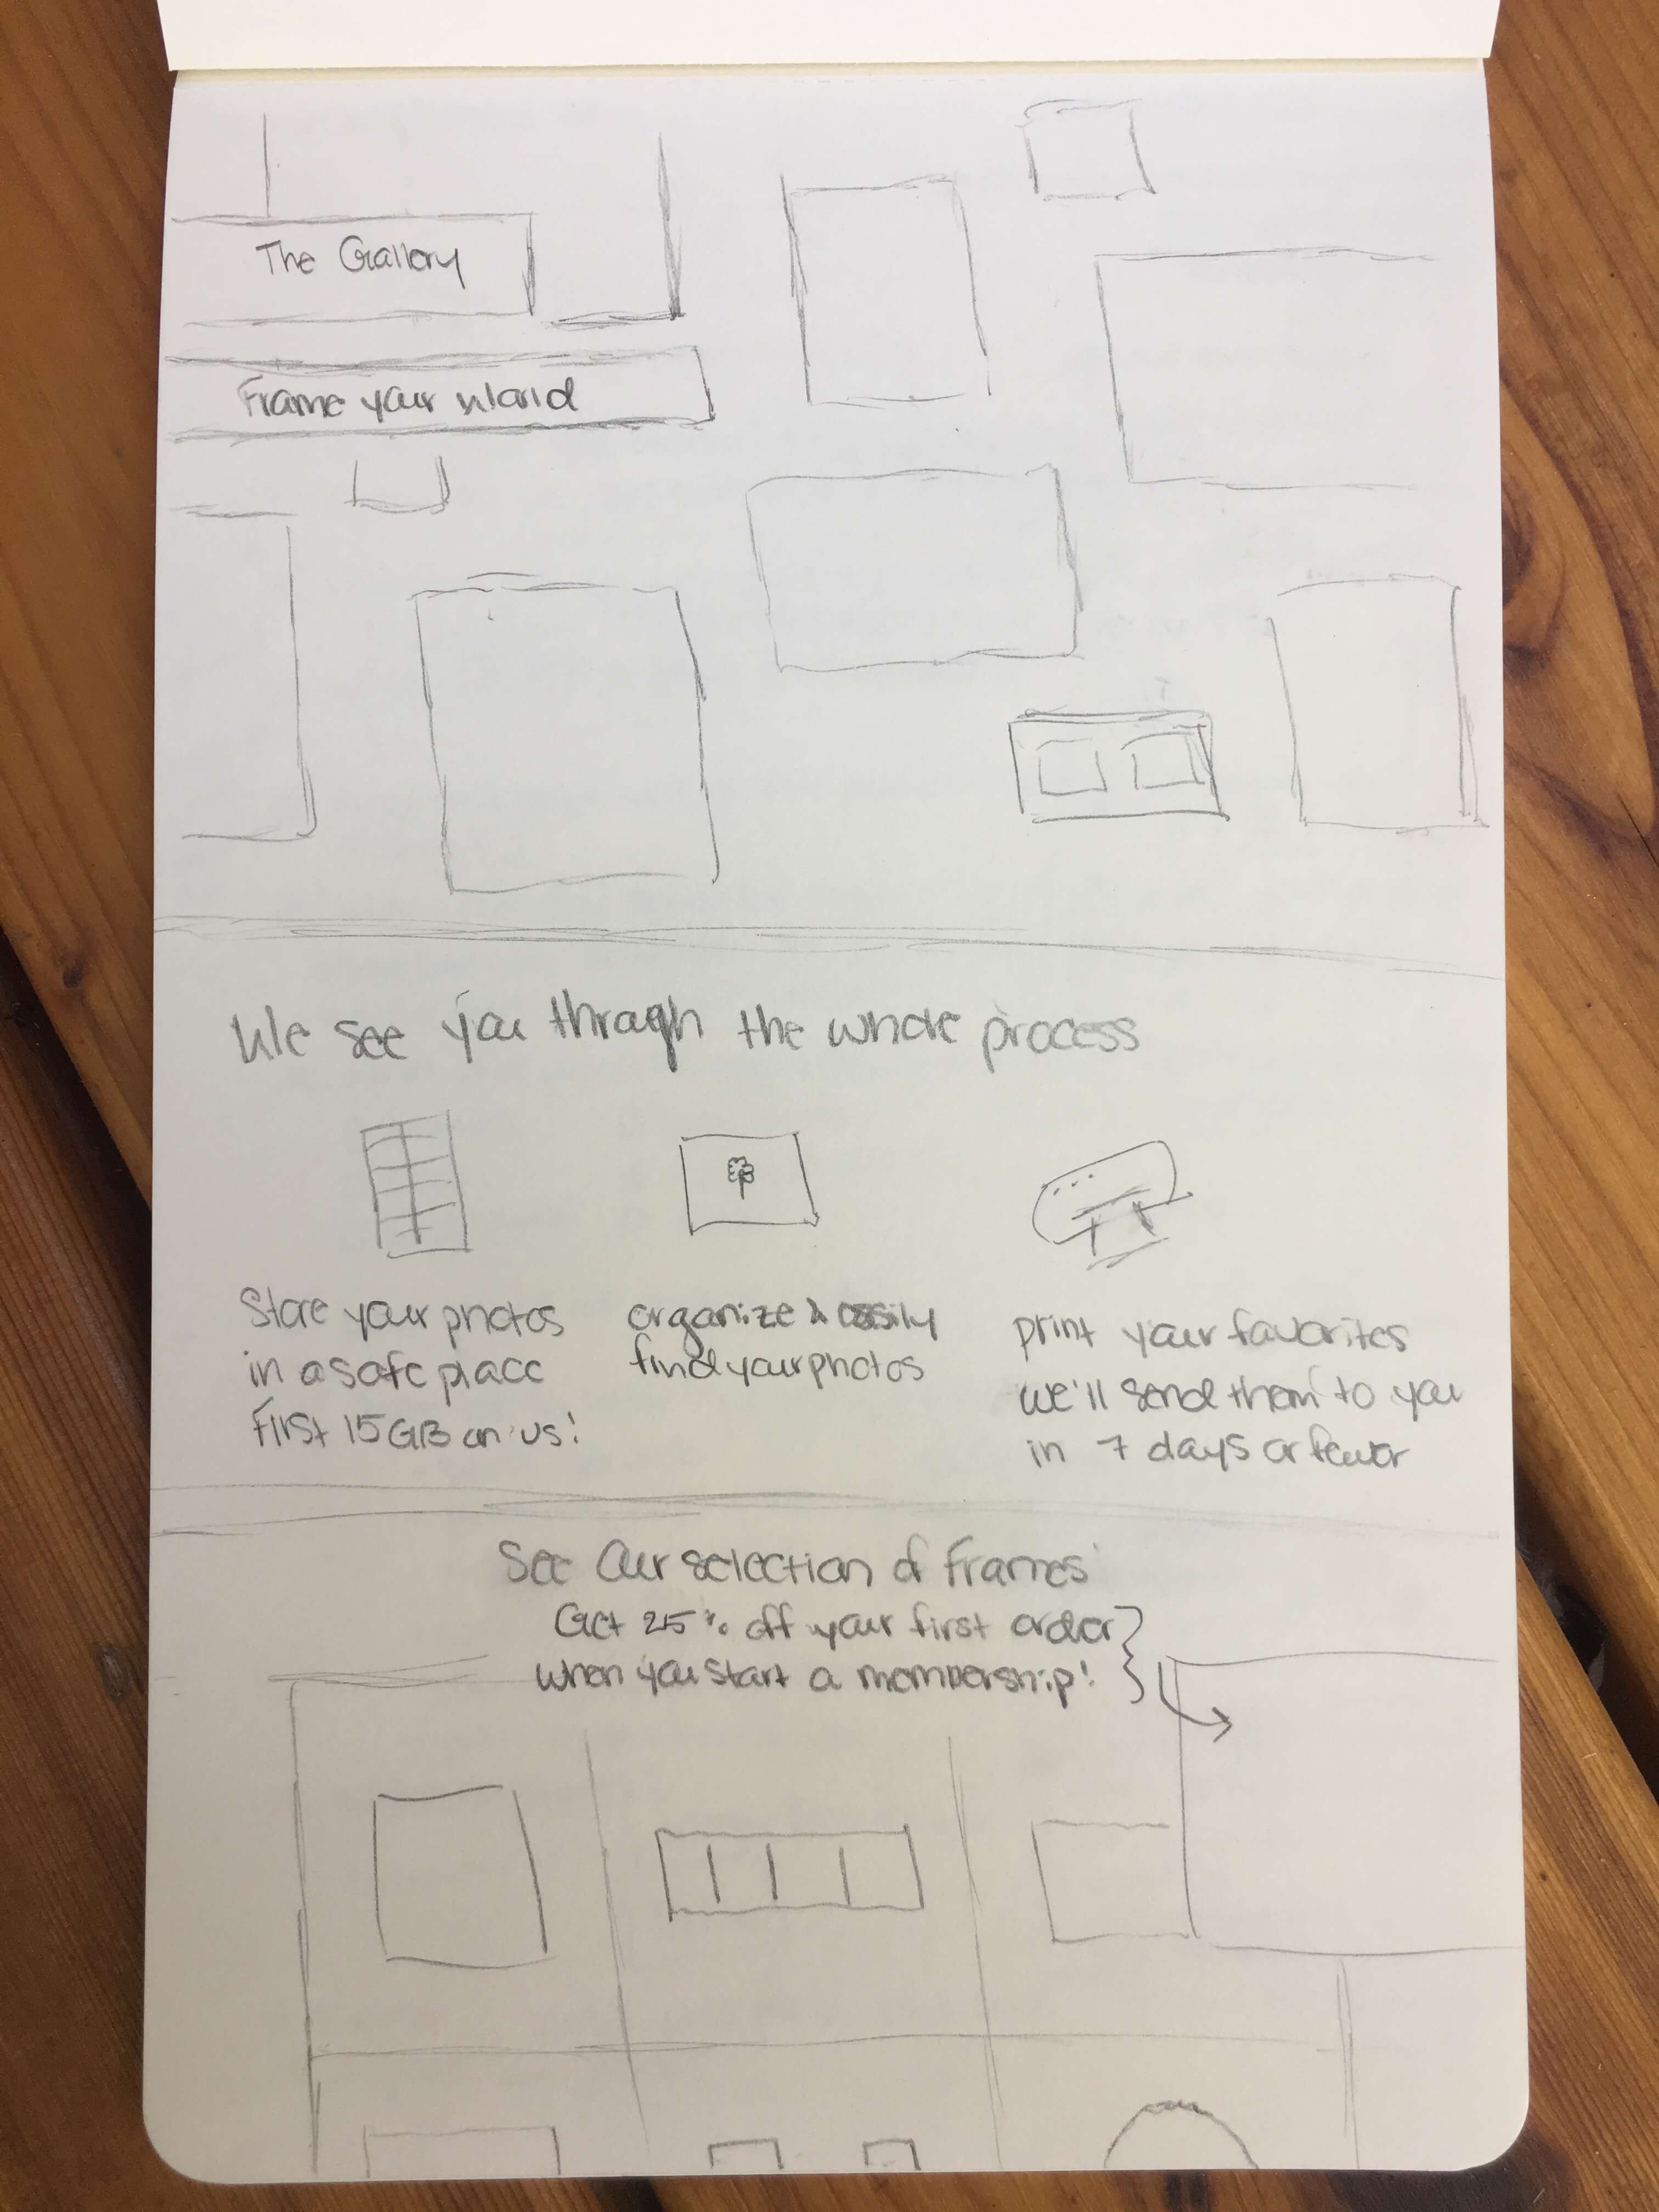 The Gallery
Frame your world
We see you through the whole process
Store your photos
in a safe place
First 15GB on us!
organize & easily
find your photos
print your favorites
we'll send them to you
in 7 days or fewer
See Our selection of frames
Get 25% off your first order
when you start a membership!